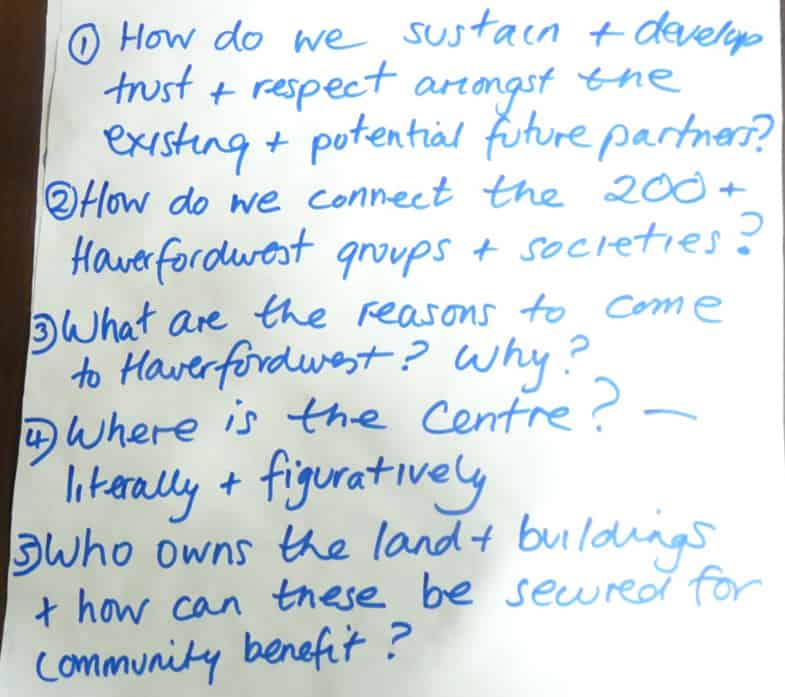 ① How do we sustain + develop
trust + respect amongst the
existing + potential future partners?
② How do we connect the 200+
Haverfordwest groups + societies?
③ What are the reasons to come
to Haverfordwest? Why?
④ Where is the Centre? —
literally + figuratively
⑤ Who owns the land + buildings
+ how can these be secured for
community benefit?